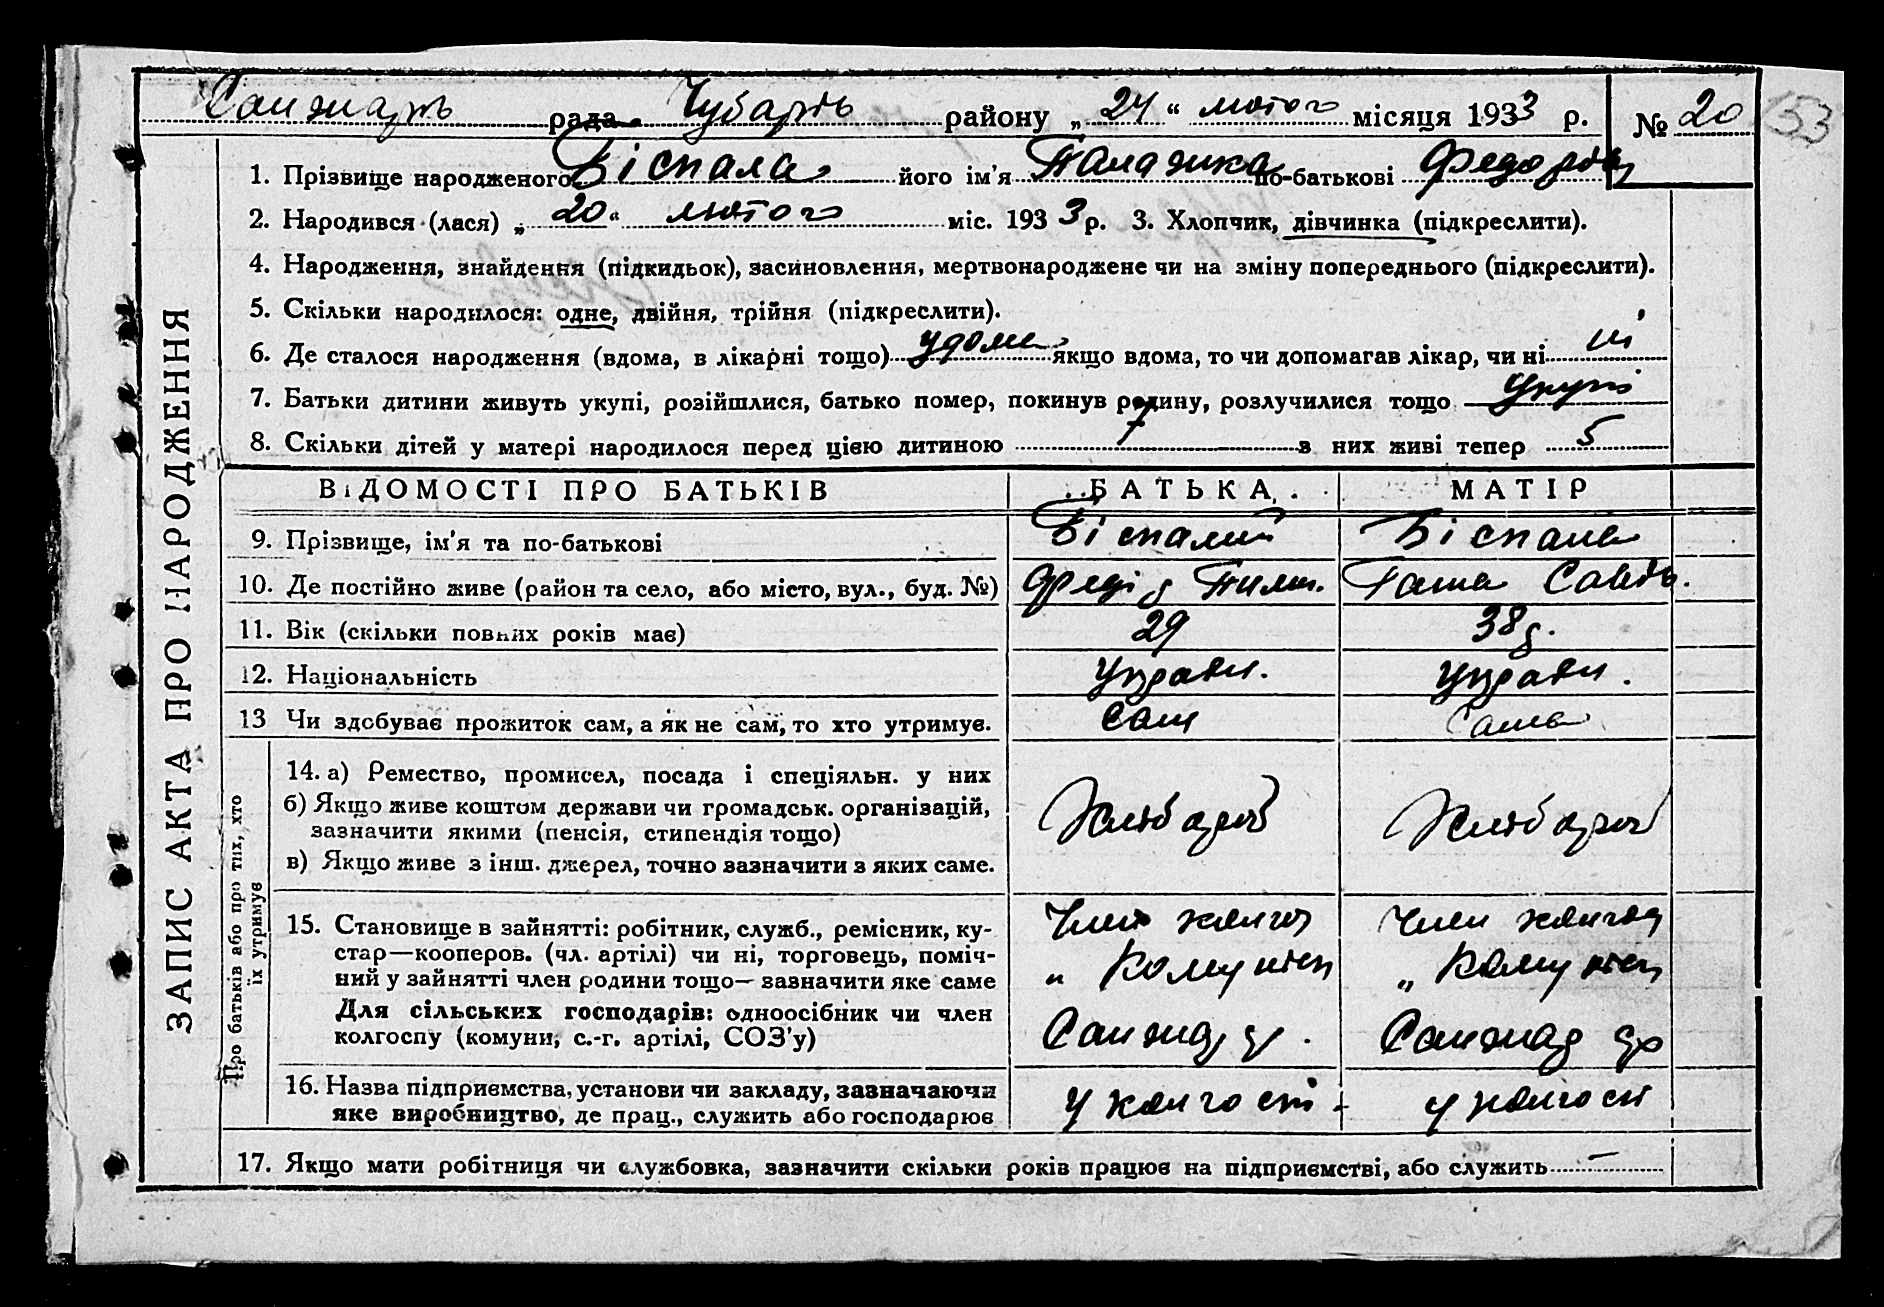 Санжарів рада Чубарів району „24“ лютого місяця 1933 р. № 20 153
1. Прізвище народженого Біспала його ім'я Палажка по-батькові Федорів
2. Народився (лася) „20“ лютого міс. 1933 р. 3. Хлопчик, дівчинка (підкреслити).
4. Народження, знайдення (підкидьок), засиновлення, мертвонароджене чи на зміну попереднього (підкреслити).
5. Скільки народилося: одне, двійня, трійня (підкреслити).
6. Де сталося народження (вдома, в лікарні тощо) удома якщо вдома, то чи допомагав лікар, чи ні ні
7. Батьки дитини живуть укупі, розійшлися, батько помер, покинув родину, розлучилися тощо укупі
8. Скільки дітей у матері народилося перед цією дитиною 7 з них живі тепер 5
ЗАПИС АКТА ПРО НАРОДЖЕННЯ
ВІДОМОСТІ ПРО БАТЬКІВ БАТЬКА МАТІР
9. Прізвище, ім'я та по-батькові Біспалий Біспала
10. Де постійно живе (район та село, або місто, вул., буд. №) Федір Пилип. Паша
11. Вік (скільки повних років має) 29 38
12. Національність Україн. Україн.
13 Чи здобуває прожиток сам, а як не сам, то хто утримує. Сам Сама
Про батьків або про тих, хто їх утримує
14. а) Ремество, промисел, посада і спеціяльн. у них
б) Якщо живе коштом держави чи громадськ. організацій,
зазначити якими (пенсія, стипендія тощо) Хлібороб Хлібороб
в) Якщо живе з інш. джерел, точно зазначити з яких саме.
15. Становище в зайнятті: робітник, служб., ремісник, ку- Член колгос Член колгос
стар—кооперов. (чл. артілі) чи ні, торговець, поміч-
ний у зайнятті член родини тощо— зазначити яке саме „ „
Для сільських господарів: одноосібник чи член
колгоспу (комуни, с.-г. артілі, СОЗ'у) Санжар Санжар
16. Назва підприємства, установи чи закладу, зазначаючи
яке виробництво, де прац., служить або господарює у колгоспі у колгоспі
17. Якщо мати робітниця чи службовка, зазначити скільки років працює на підприємстві, або служить —